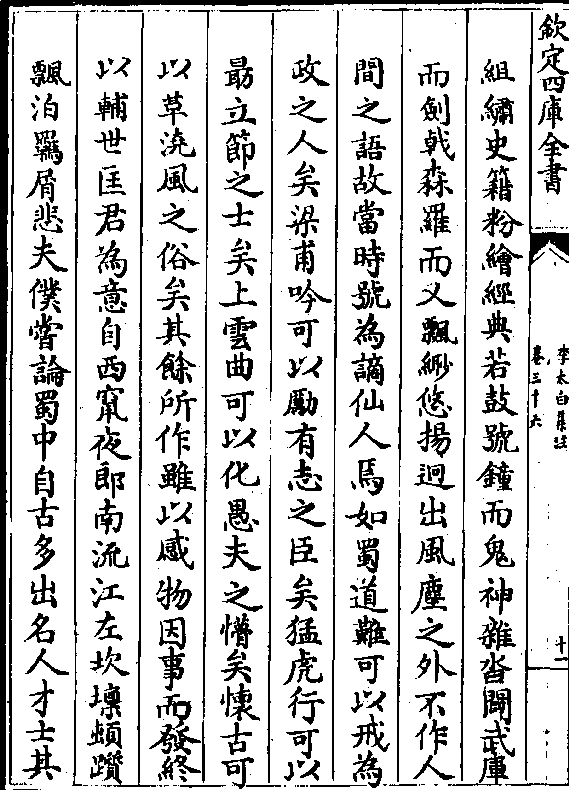 欽定四庫全書
李太白集注
卷三十六
十一
組繡史籍粉繪經典若鼓號鐘而鬼神雜沓闢武庫
而劍戟森羅而又飄緲悠揚迥出風塵之外不作人
間之語故當時號為謫仙人焉如蜀道難可以戒為
政之人矣梁甫吟可以勵有志之臣矣猛虎行可以
朂立節之士矣上雲曲可以化愚夫之懵矣懷古可
以草澆風之俗矣其餘所作雖以感物因事而發終
以輔世匡君為意自西竄夜郎南流江左坎壈頓躓
飄泊羈屑悲夫僕嘗論蜀中自古多出名人才士其